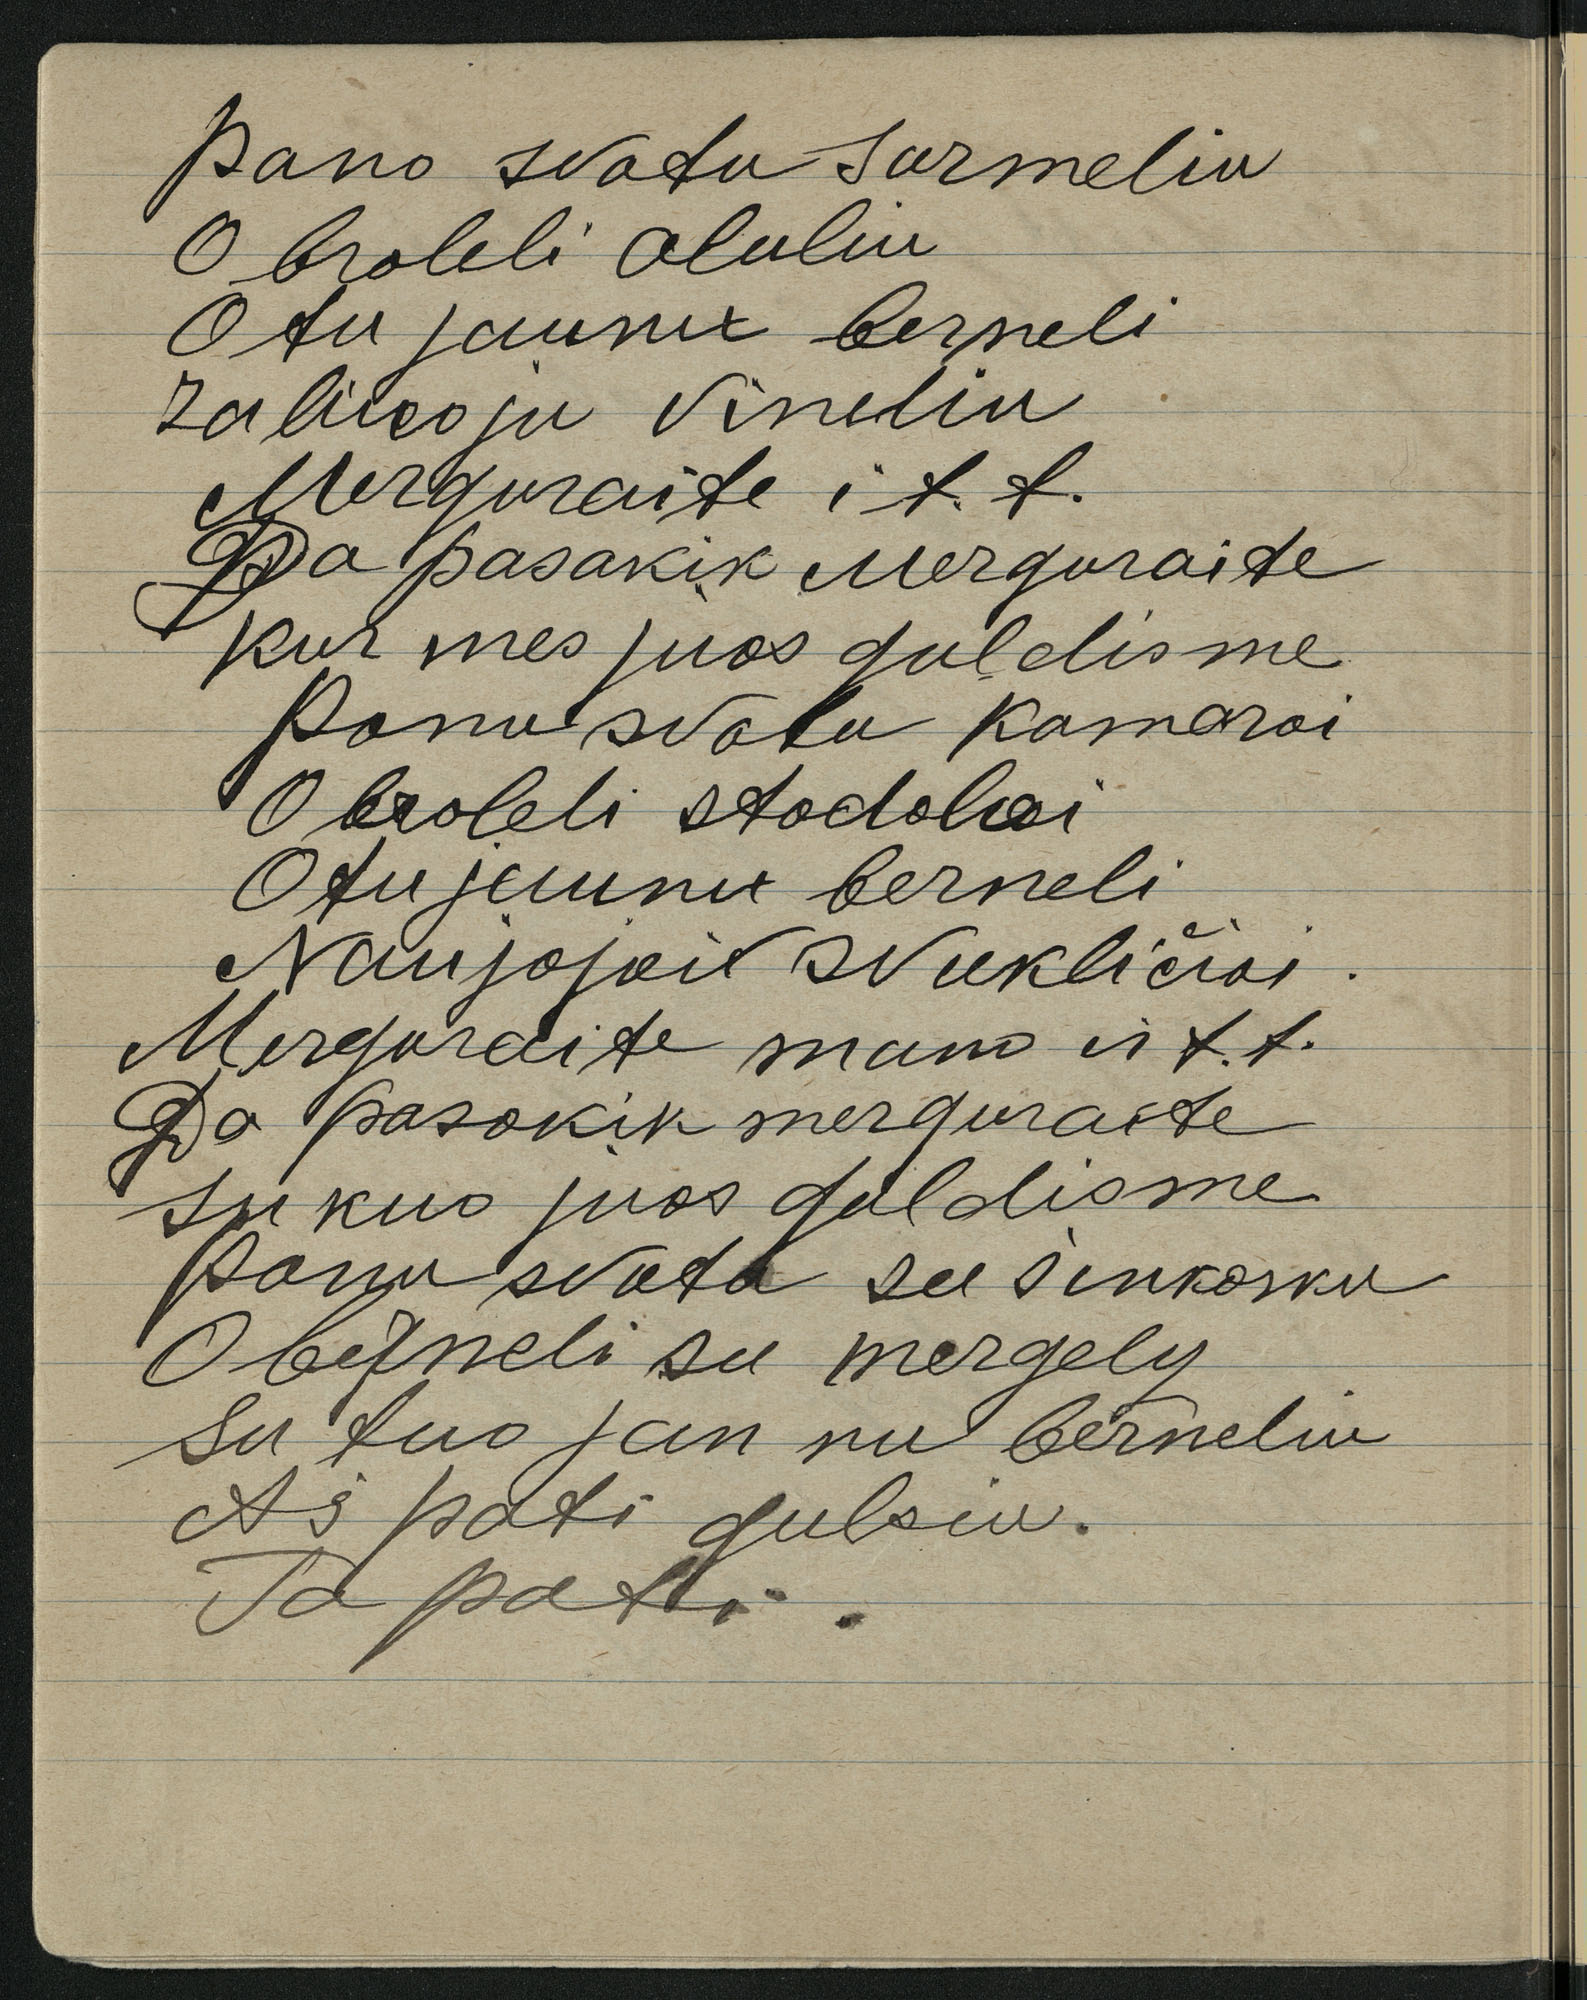 Pano svatu surmeliu
O broleli aluliu
O tu jaunu berneli
zaliuoju vineliu
Merguraite i t. t.
Da pasakik Merguraite
kur mes juos guldisme
Panu svatu kamaroi
O broleli stodoloi
O tu jaunu berneli
Naujojoi svukličioi.
Merguraite mano ir t. t.
Da pasakik merguraite
su kuo juos guldisme
Panu svatu su šinkorku
O berneli su mergely
su tuo jau nu berneliu
Aš pati gulsiu.
Ta pati.